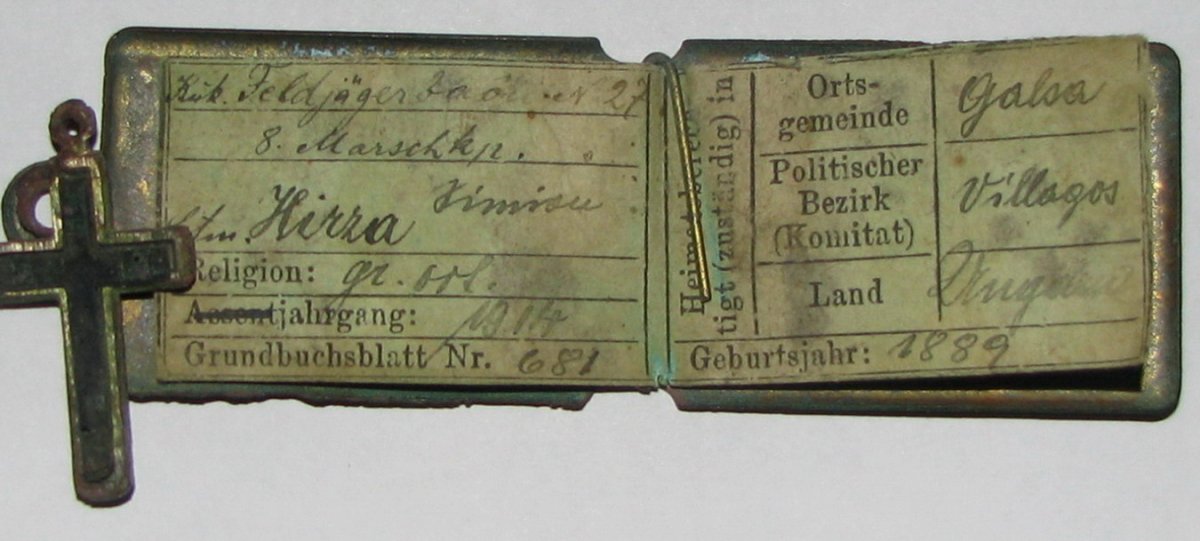 K.u.k. Feldjäger Baon Nº 27
8. Marschkp.
Simion
Hirza
Religion: gr. ort.
Assentjahrgang: 1914
Grundbuchsblatt Nr. 681
Heimatsberech
tigt (zuständig) in
Orts-
gemeinde
Galsa
Politischer
Bezirk
(Komitat)
Villagos
Land
Ungarn
Geburtsjahr: 1889